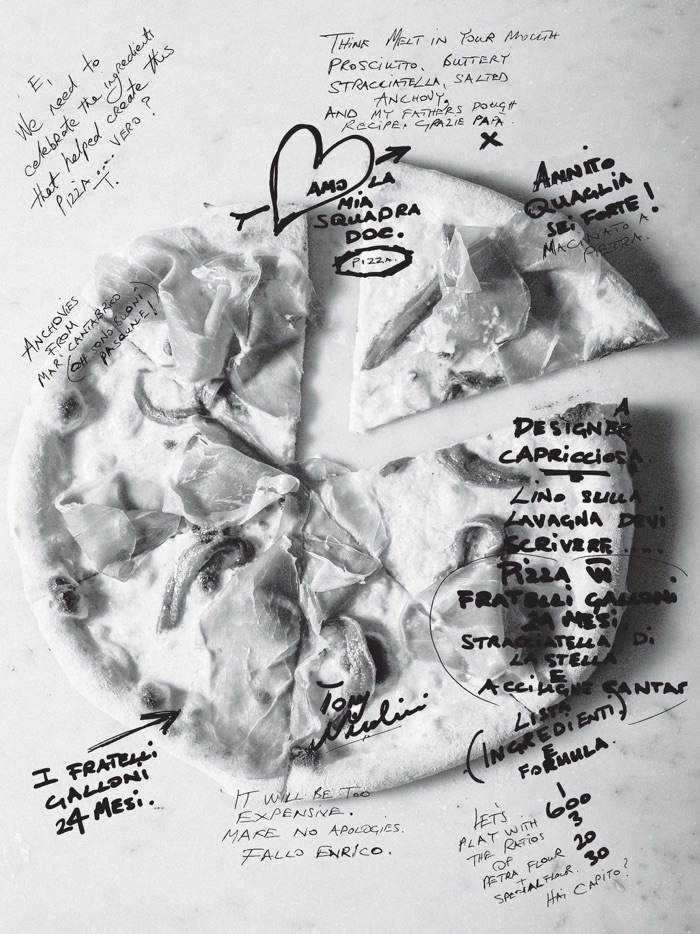 E,
We need to
celebrate the ingredients
that helped create this
PIZZA .... VERO?
T.
THINK MELT IN YOUR MOUTH
PROSCIUTTO, BUTTERY
STRACCIATELLA, SALTED
ANCHOVY,
AND MY FATHERS DOUGH
RECIPE. GRAZIE PAPA.
X
AMO LA
MIA
SQUADRA
DOC.
PIZZA.
ANNITO
QUAGLIA
SEI FORTE!
MACINATO A
PIETRA.
ANCHOVIES
FROM
MARI CANTABRICO
(OH SONO BUONI
PASQUALE!)
A
DESIGNER
CAPRICCIOSA.
LINO SULLA
LAVAGNA DEVI
SCRIVERE ....
PIZZA W
FRATELLI GALLONI
24 MESI
STRACCIATELLA DI
LA STELLA
E
ACCIUGHE SANTAF
LISTA
(INGREDIENTI)
E
FORMULA.
Tony
Nicolini
I FRATELLI
GALLONI
24 MESI.
IT WILL BE TOO
EXPENSIVE.
MAKE NO APOLOGIES.
FALLO ENRICO.
LET'S
PLAY WITH
THE RATIOS
OF
PETRA FLOUR
+
SPECIAL FLOUR.
HAI CAPITO?
1
600
3
20
30